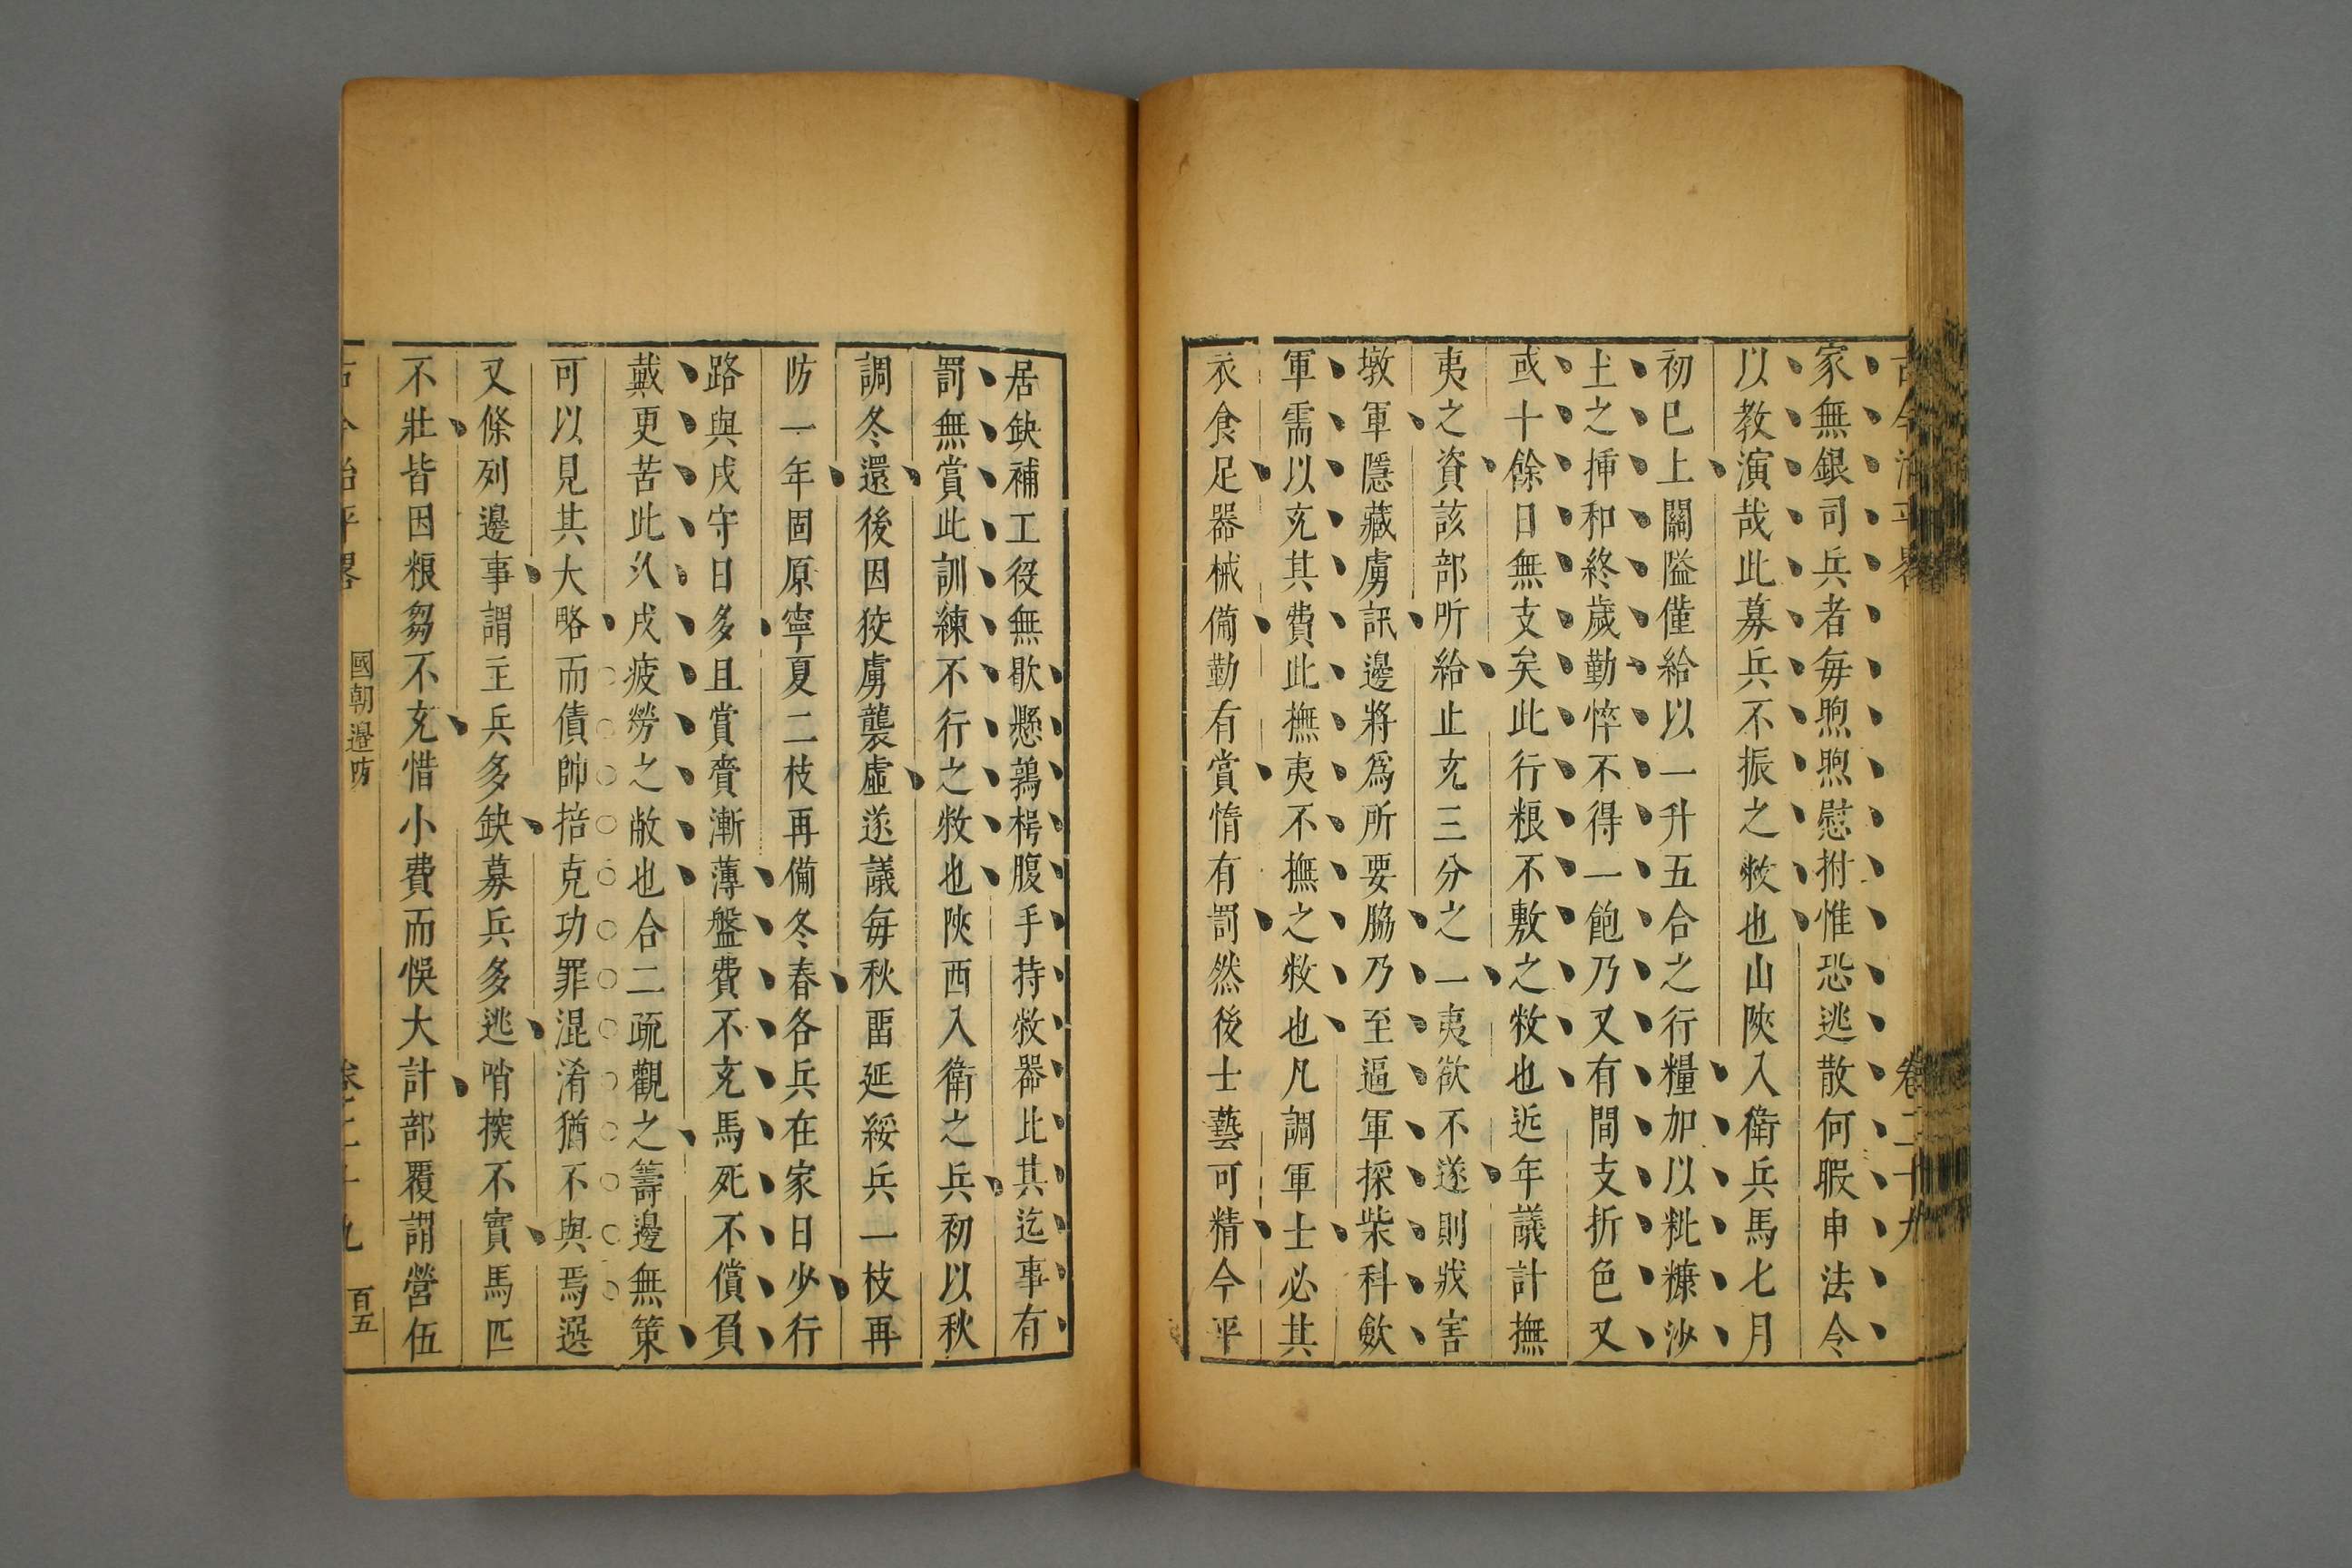 古今治平畧 卷二十九
家無銀司兵者每煦煦慰拊惟恐逃散何暇申法令
以教演哉此募兵不振之敝也山陝入衛兵馬七月
初巳上關隘僅給以一升五合之行糧加以粃糠沙
土之揷和終歲勤悴不得一飽乃又有間支折色又
或十餘日無支矣此行粮不敷之敝也近年議計撫
夷之資該部所給止充三分之一夷欲不遂則戕害
墩軍隱藏虜訊邊將爲所要脇乃至逼軍採柴科斂
軍需以充其費此撫夷不撫之敝也凡調軍士必其
衣食足器械備勤有賞惰有罰然後士藝可精今平
居缺補工役無歇懸鶉枵腹手持敝器比其迄事有
罰無賞此訓練不行之敝也陝西入衛之兵初以秋
調冬還後因狡虜襲虛遂議每秋畱延綏兵一枝再
防一年固原寧夏二枝再備冬春各兵在家日少行
路與戍守日多且賞賚漸薄盤費不充馬死不償負
戴更苦此久戍疲勞之敝也合二疏觀之籌邊無策
可以見其大略而債帥掊克功罪混淆猶不與焉選
又條列邊事謂主兵多缺募兵多逃哨探不實馬匹
不壯皆因粮芻不充惜小費而悞大計部覆謂營伍
古今治平畧 國朝邊防 卷二十九 百五